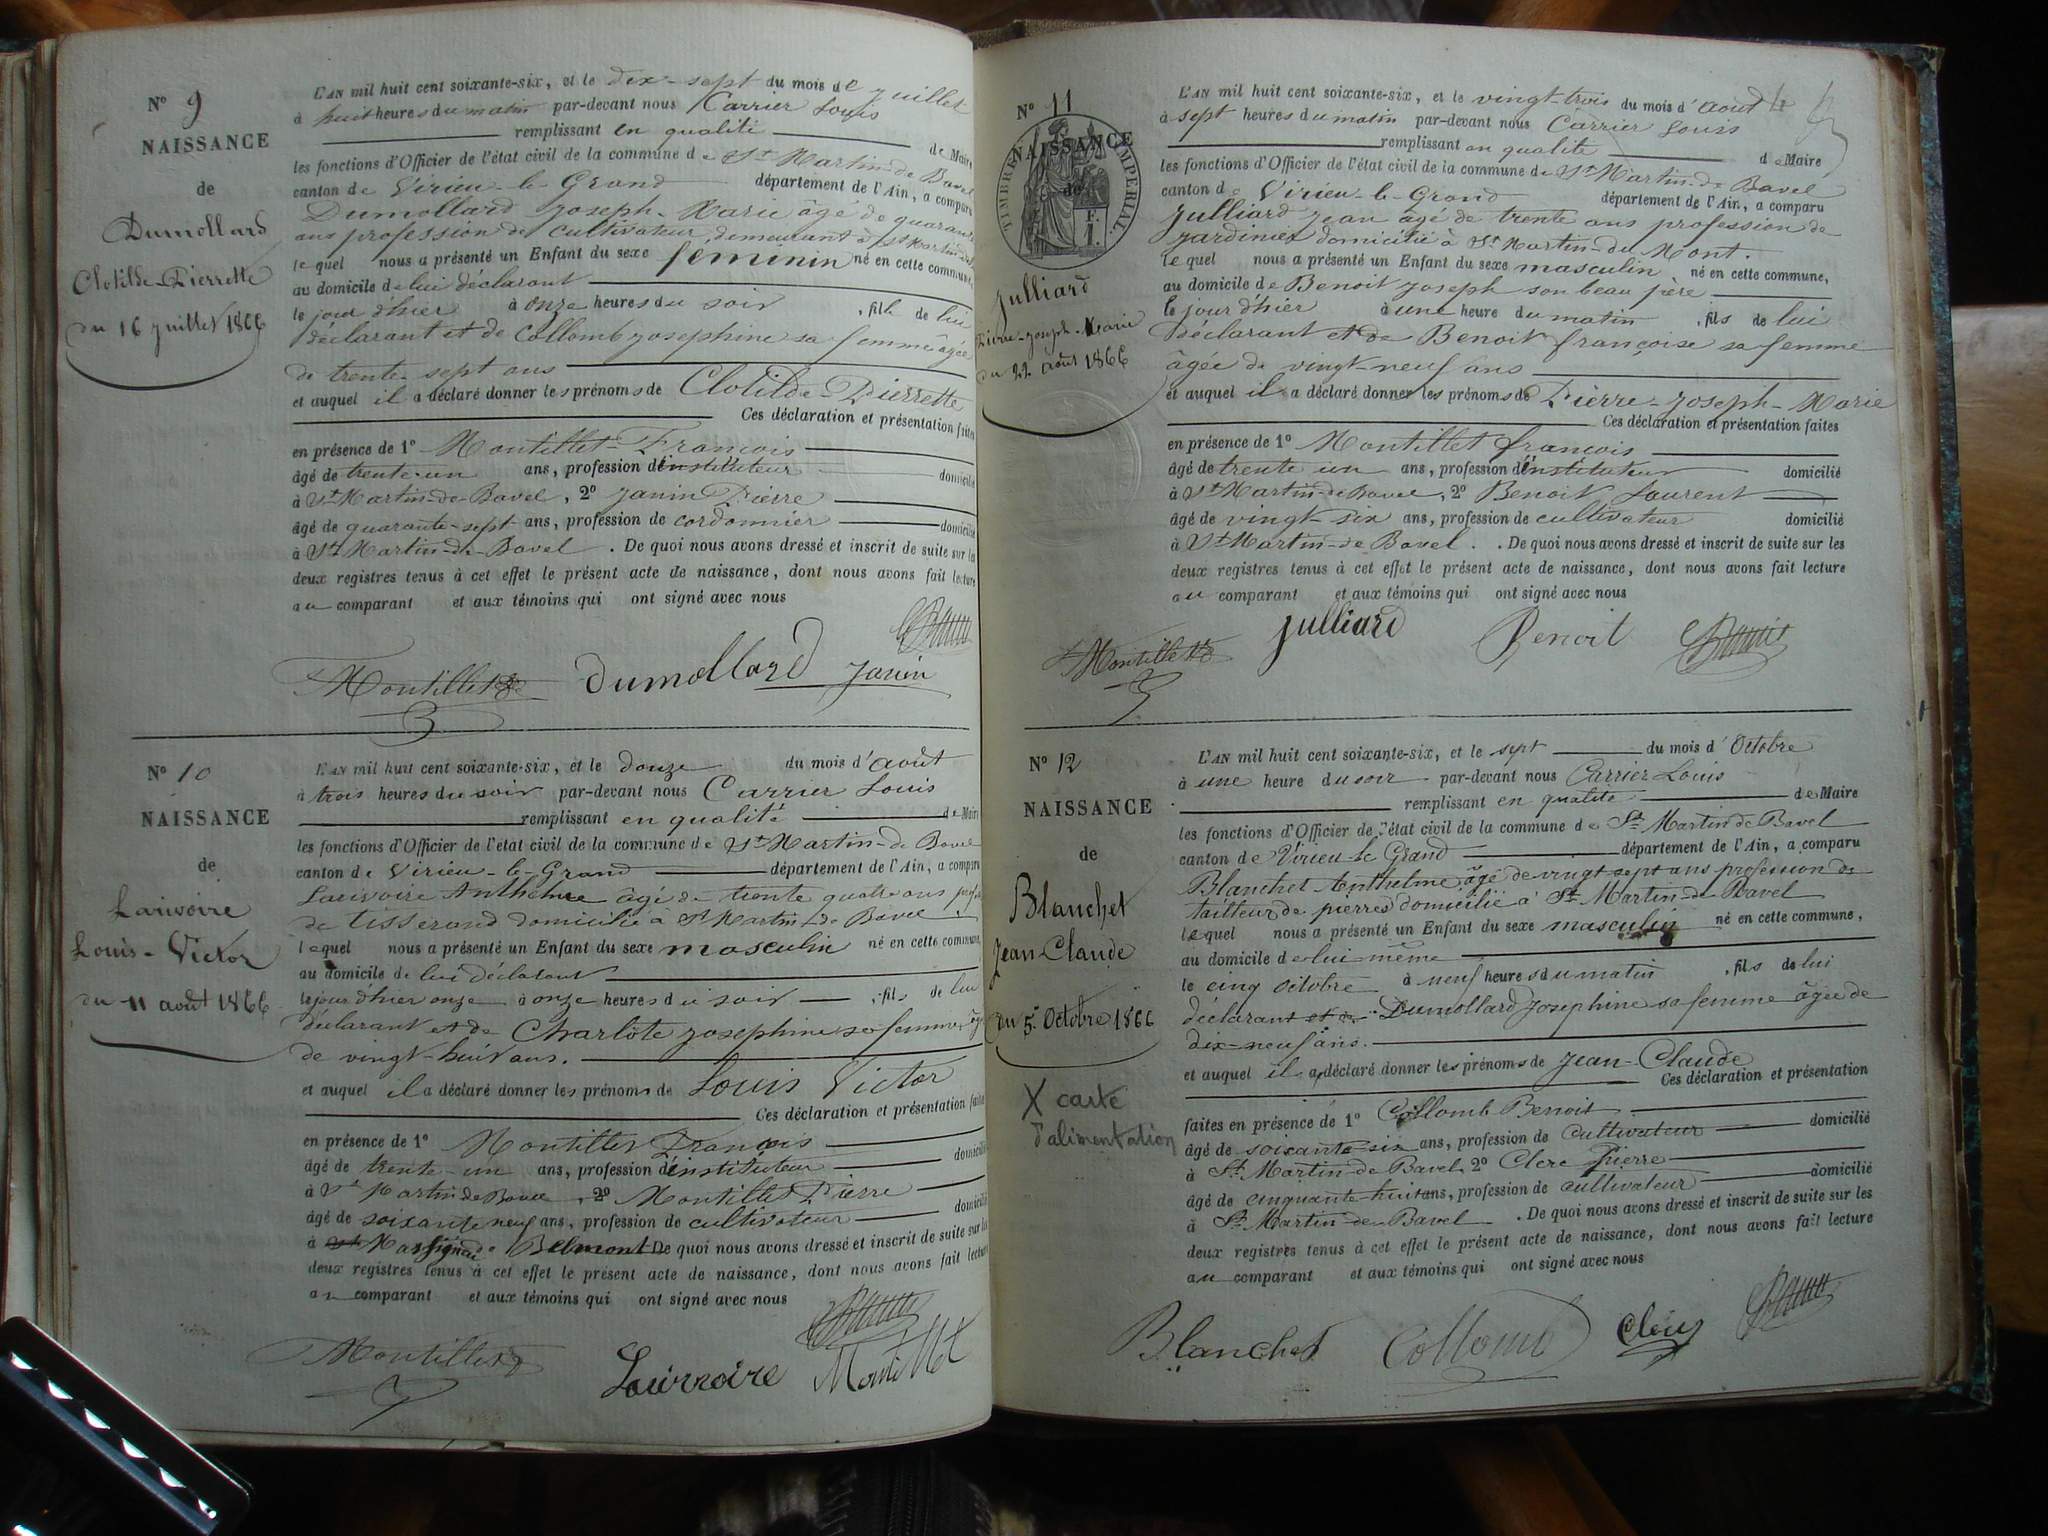 N° 9
NAISSANCE
de
Dumollard
Clotilde-Pierrette
du 16 juillet 1866
L'AN mil huit cent soixante-six, et le dix-sept du mois de juillet
à huit heures du matin par-devant nous Carrier Louis
remplissant en qualité de Maire
les fonctions d'Officier de l'état civil de la commune de St Martin-de Bavel
canton de Virieu-le-Grand département de l'Ain, a comparu
Dumollard Joseph-Marie âgé de quarante
ans profession de cultivateur, demeurant à St Martin
lequel nous a présenté un Enfant du sexe feminin né en cette commune
au domicile de lui déclarant
le jour d'hier à onze heures du soir , fille de lui
déclarant et de Collomb Josephine sa femme âgée
de trente-sept ans
et auquel il a déclaré donner les prénoms de Clotilde-Pierrette
Ces déclaration et présentation faites
en présence de 1° Montillet-François
âgé de trente-un ans, profession d'instituteur domicilié
à St Martin-de-Bavel, 2° Janin Pierre
âgé de quarante-sept ans, profession de cordonnier domicilié
à St Martin-de-Bavel . De quoi nous avons dressé et inscrit de suite sur les
deux registres tenus à cet effet le présent acte de naissance, dont nous avons fait lecture
au comparant et aux témoins qui ont signé avec nous
Montillet Dumollard Janin
N° 10
NAISSANCE
de
Larivoire
Louis-Victor
du 11 août 1866
L'AN mil huit cent soixante-six, et le douze du mois d'août
à trois heures du soir par-devant nous Carrier Louis
remplissant en qualité de Maire
les fonctions d'Officier de l'état civil de la commune de St Martin-de Bavel
canton de Virieu-le-Grand département de l'Ain, a comparu
Larivoire Anthelme âgé de trente quatre ans
de tisserand domicilié à St Martin-de Bavel
lequel nous a présenté un Enfant du sexe masculin né en cette commune,
au domicile de lui déclarant
le jour d'hier onze à onze heures du soir , fils de lui
déclarant et de Charlote Josephine sa femme
de vingt-huit ans.
et auquel il a déclaré donner les prénoms de Louis Victor
Ces déclaration et présentation faites
en présence de 1° Montillet François
âgé de trente-un ans, profession d'instituteur domicilié
à St Martin de Bavel, 2° Montillet Pierre
âgé de soixante neuf ans, profession de cultivateur domicilié
à Belmont De quoi nous avons dressé et inscrit de suite sur les
deux registres tenus à cet effet le présent acte de naissance, dont nous avons fait lecture
au comparant et aux témoins qui ont signé avec nous
Montillet Larivoire Montillet
N° 11
NAISSANCE
de
TIMBRE IMPERIAL
F.
1.
Julliard
Pierre-Joseph-Marie
du 22 août 1866
L'AN mil huit cent soixante-six, et le vingt-trois du mois d'août
à sept heures du matin par-devant nous Carrier Louis
remplissant en qualité de Maire
les fonctions d'Officier de l'état civil de la commune de St Martin-de Bavel
canton de Virieu-le-Grand département de l'Ain, a comparu
Julliard Jean âgé de trente ans profession de
jardinier domicilié à St Martin-du Mont.
lequel nous a présenté un Enfant du sexe masculin né en cette commune,
au domicile de Benoit Joseph son beau père
le jour d'hier à une heure du matin , fils de lui
déclarant et de Benoit françoise sa femme
âgée de vingt-neuf ans
et auquel il a déclaré donner les prénoms de Pierre-Joseph-Marie
Ces déclaration et présentation faites
en présence de 1° Montillet françois
âgé de trente un ans, profession d'instituteur domicilié
à St Martin de Bavel, 2° Benoit Laurent
âgé de vingt-six ans, profession de cultivateur domicilié
à St Martin-de Bavel . De quoi nous avons dressé et inscrit de suite sur les
deux registres tenus à cet effet le présent acte de naissance, dont nous avons fait lecture
au comparant et aux témoins qui ont signé avec nous
Montillet Julliard Benoit
N° 12
NAISSANCE
de
Blanchet
Jean-Claude
du 5 Octobre 1866
X carte
d'alimentation
L'AN mil huit cent soixante-six, et le sept du mois d'Octobre
à une heure du soir par-devant nous Carrier Louis
remplissant en qualité de Maire
les fonctions d'Officier de l'état civil de la commune de St Martin de Bavel
canton de Virieu-le Grand département de l'Ain, a comparu
Blanchet Anthelme âgé de vingt sept ans profession de
tailleur de pierres domicilié à St Martin-de Bavel
lequel nous a présenté un Enfant du sexe masculin né en cette commune,
au domicile de lui-même
le cinq octobre à neuf heures du matin , fils de lui
déclarant et de Dumollard Josephine sa femme âgée de
dix-neuf ans.
et auquel il a déclaré donner les prénoms de Jean-Claude
Ces déclaration et présentation
faites en présence de 1° Collomb Benoit
âgé de soixante-six ans, profession de cultivateur domicilié
à St Martin de Bavel, 2° Clerc Pierre
âgé de cinquante-huit ans, profession de cultivateur domicilié
à St Martin-de Bavel . De quoi nous avons dressé et inscrit de suite sur les
deux registres tenus à cet effet le présent acte de naissance, dont nous avons fait lecture
au comparant et aux témoins qui ont signé avec nous
Blanchet Collomb Clerc